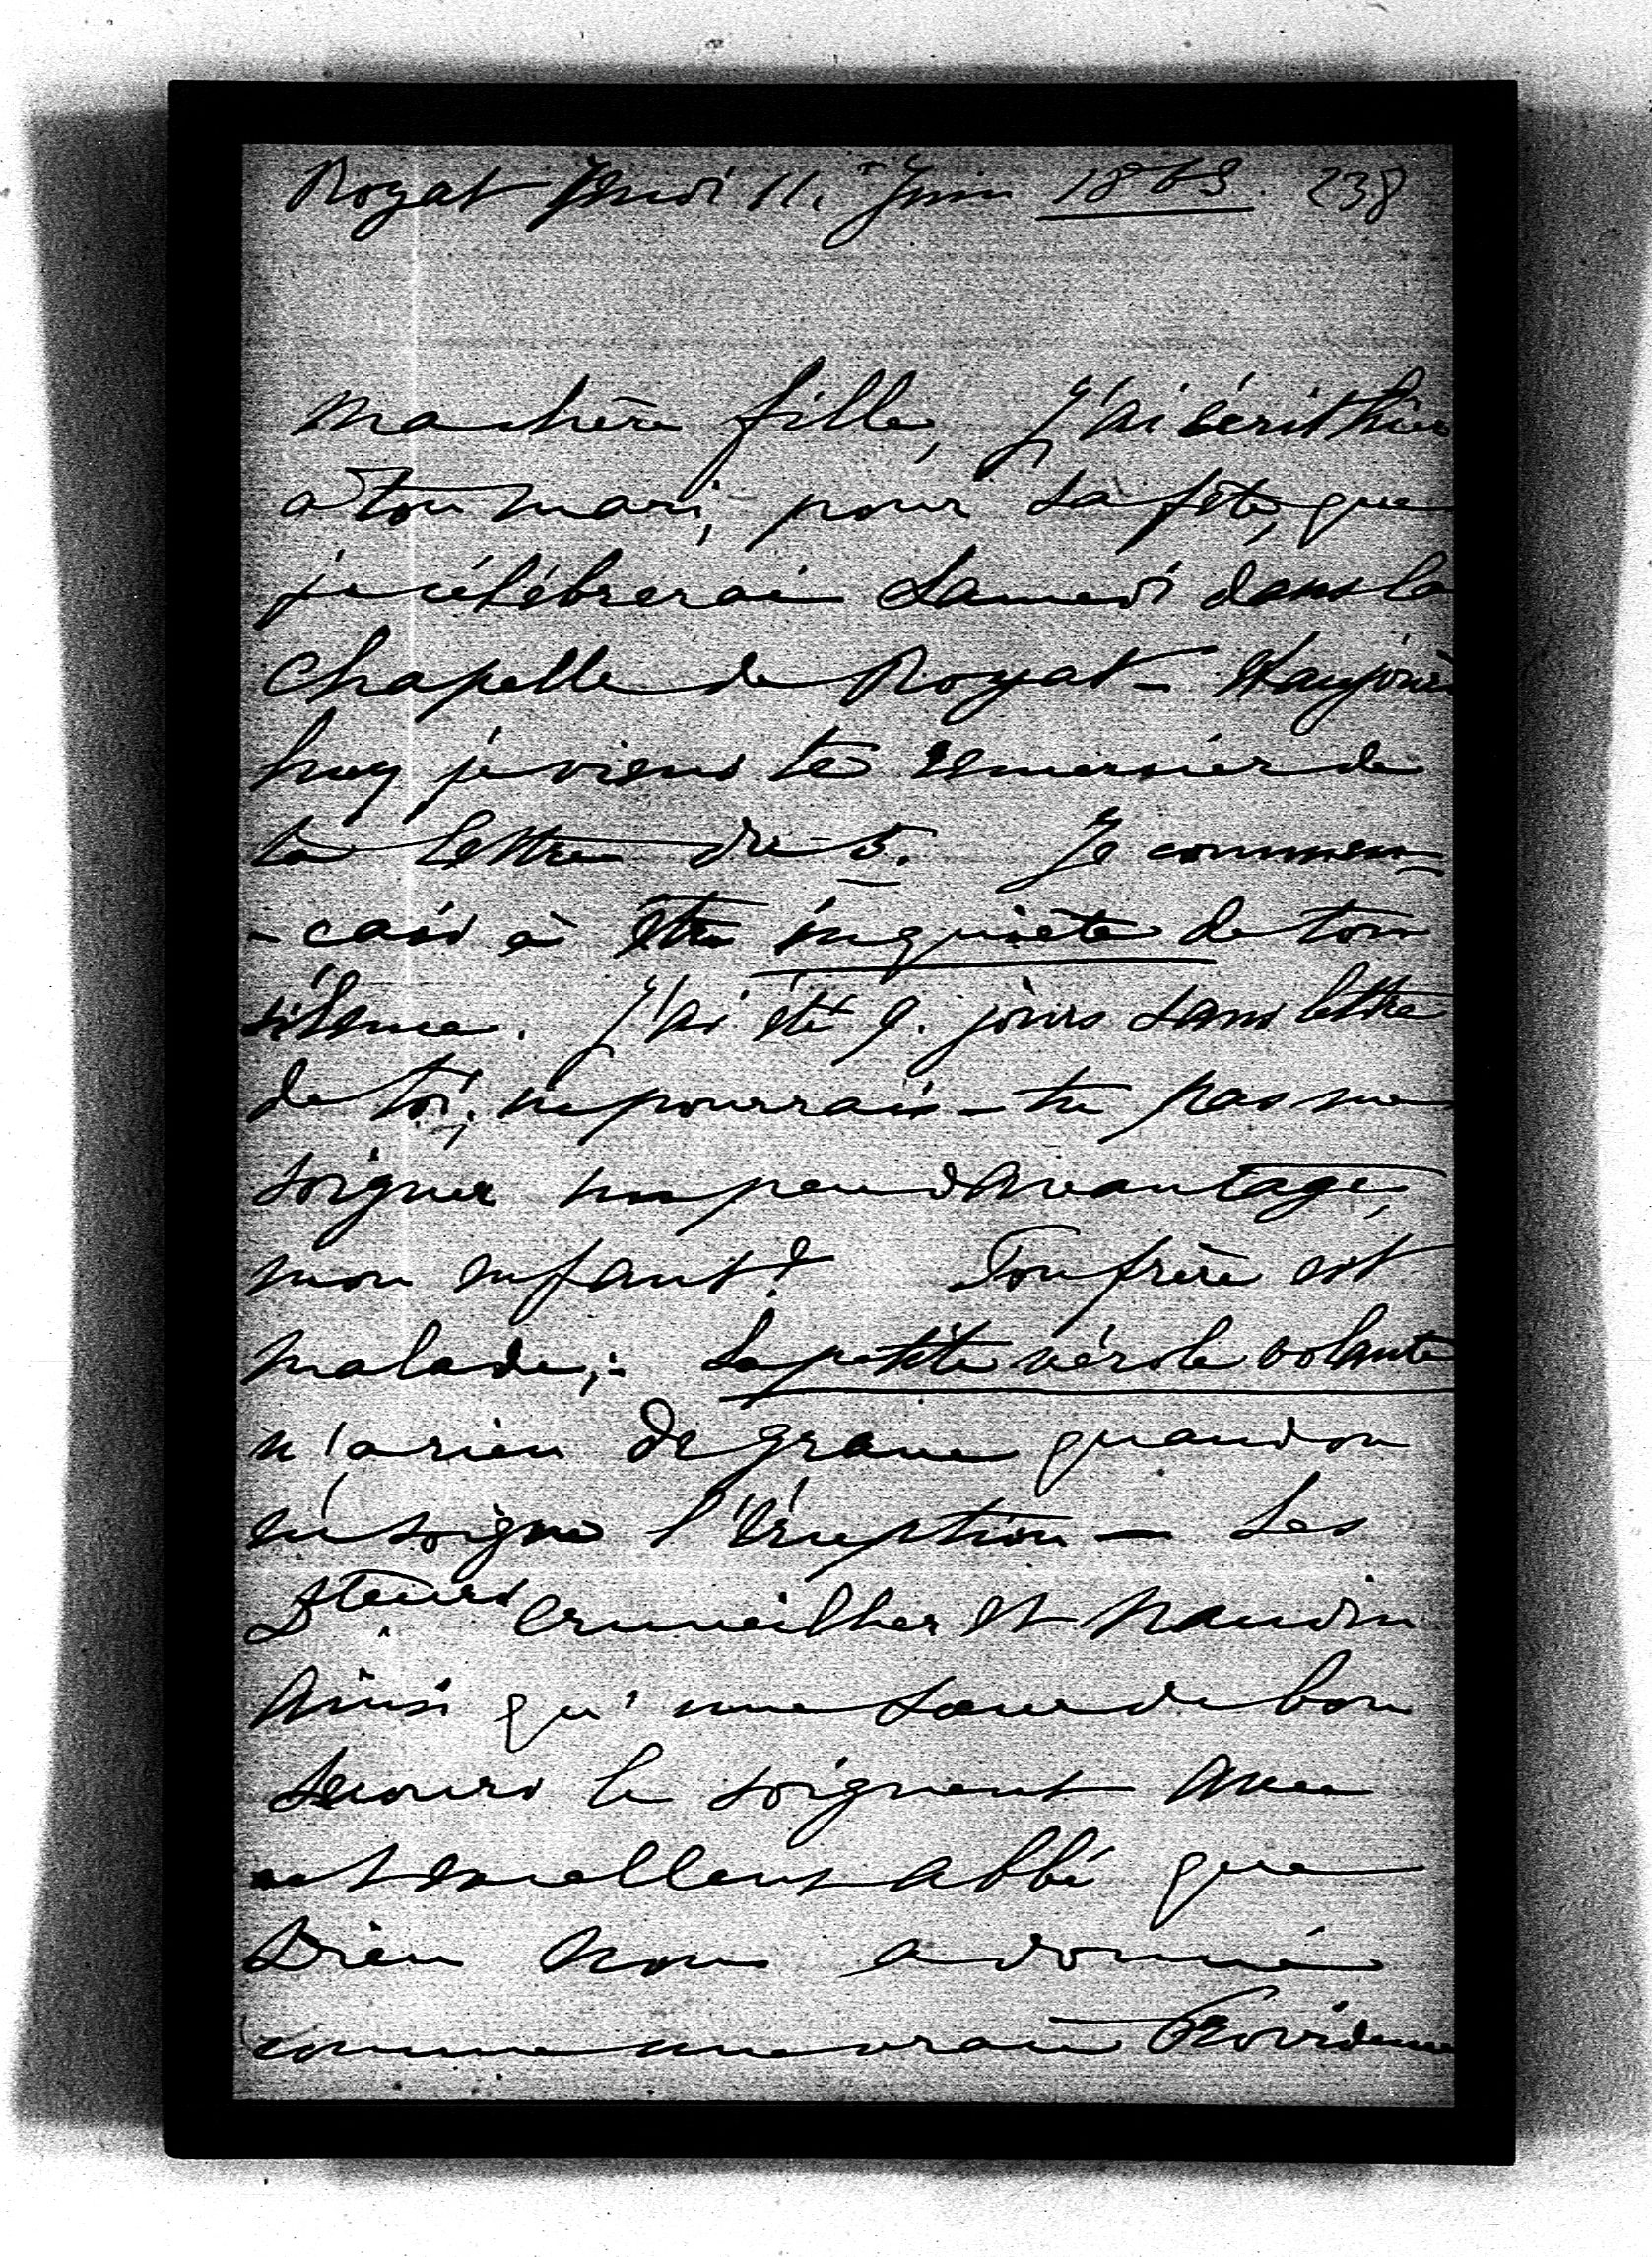 Royat Jeudi 11. Juin 1863. 238
Ma chère fille, J'ai écrit hier
a ton mari, pour sa fête, que
je célébrerai Samedi dans la
Chapelle de Royat - et aujour
huy je viens te remercier de
ta lettre du 5. Je commen=
-cais à être inquiète de ton
silence. J'ai été 9. jours sans lettre
de toi; ne pourrais-tu pas me
soigner un peu davantage,
mon enfant? Ton frère est
malade,: La petite vérole volante
n'a rien de grave quand on
en soigne l'éruption - Les
Dteurs. Cruveilher et Naudin
Ainsi qu'une Soeur de bon
Secours le soignent Avec
cet excellent abbé que
Dieu nous a donné
comme une vraie Providence